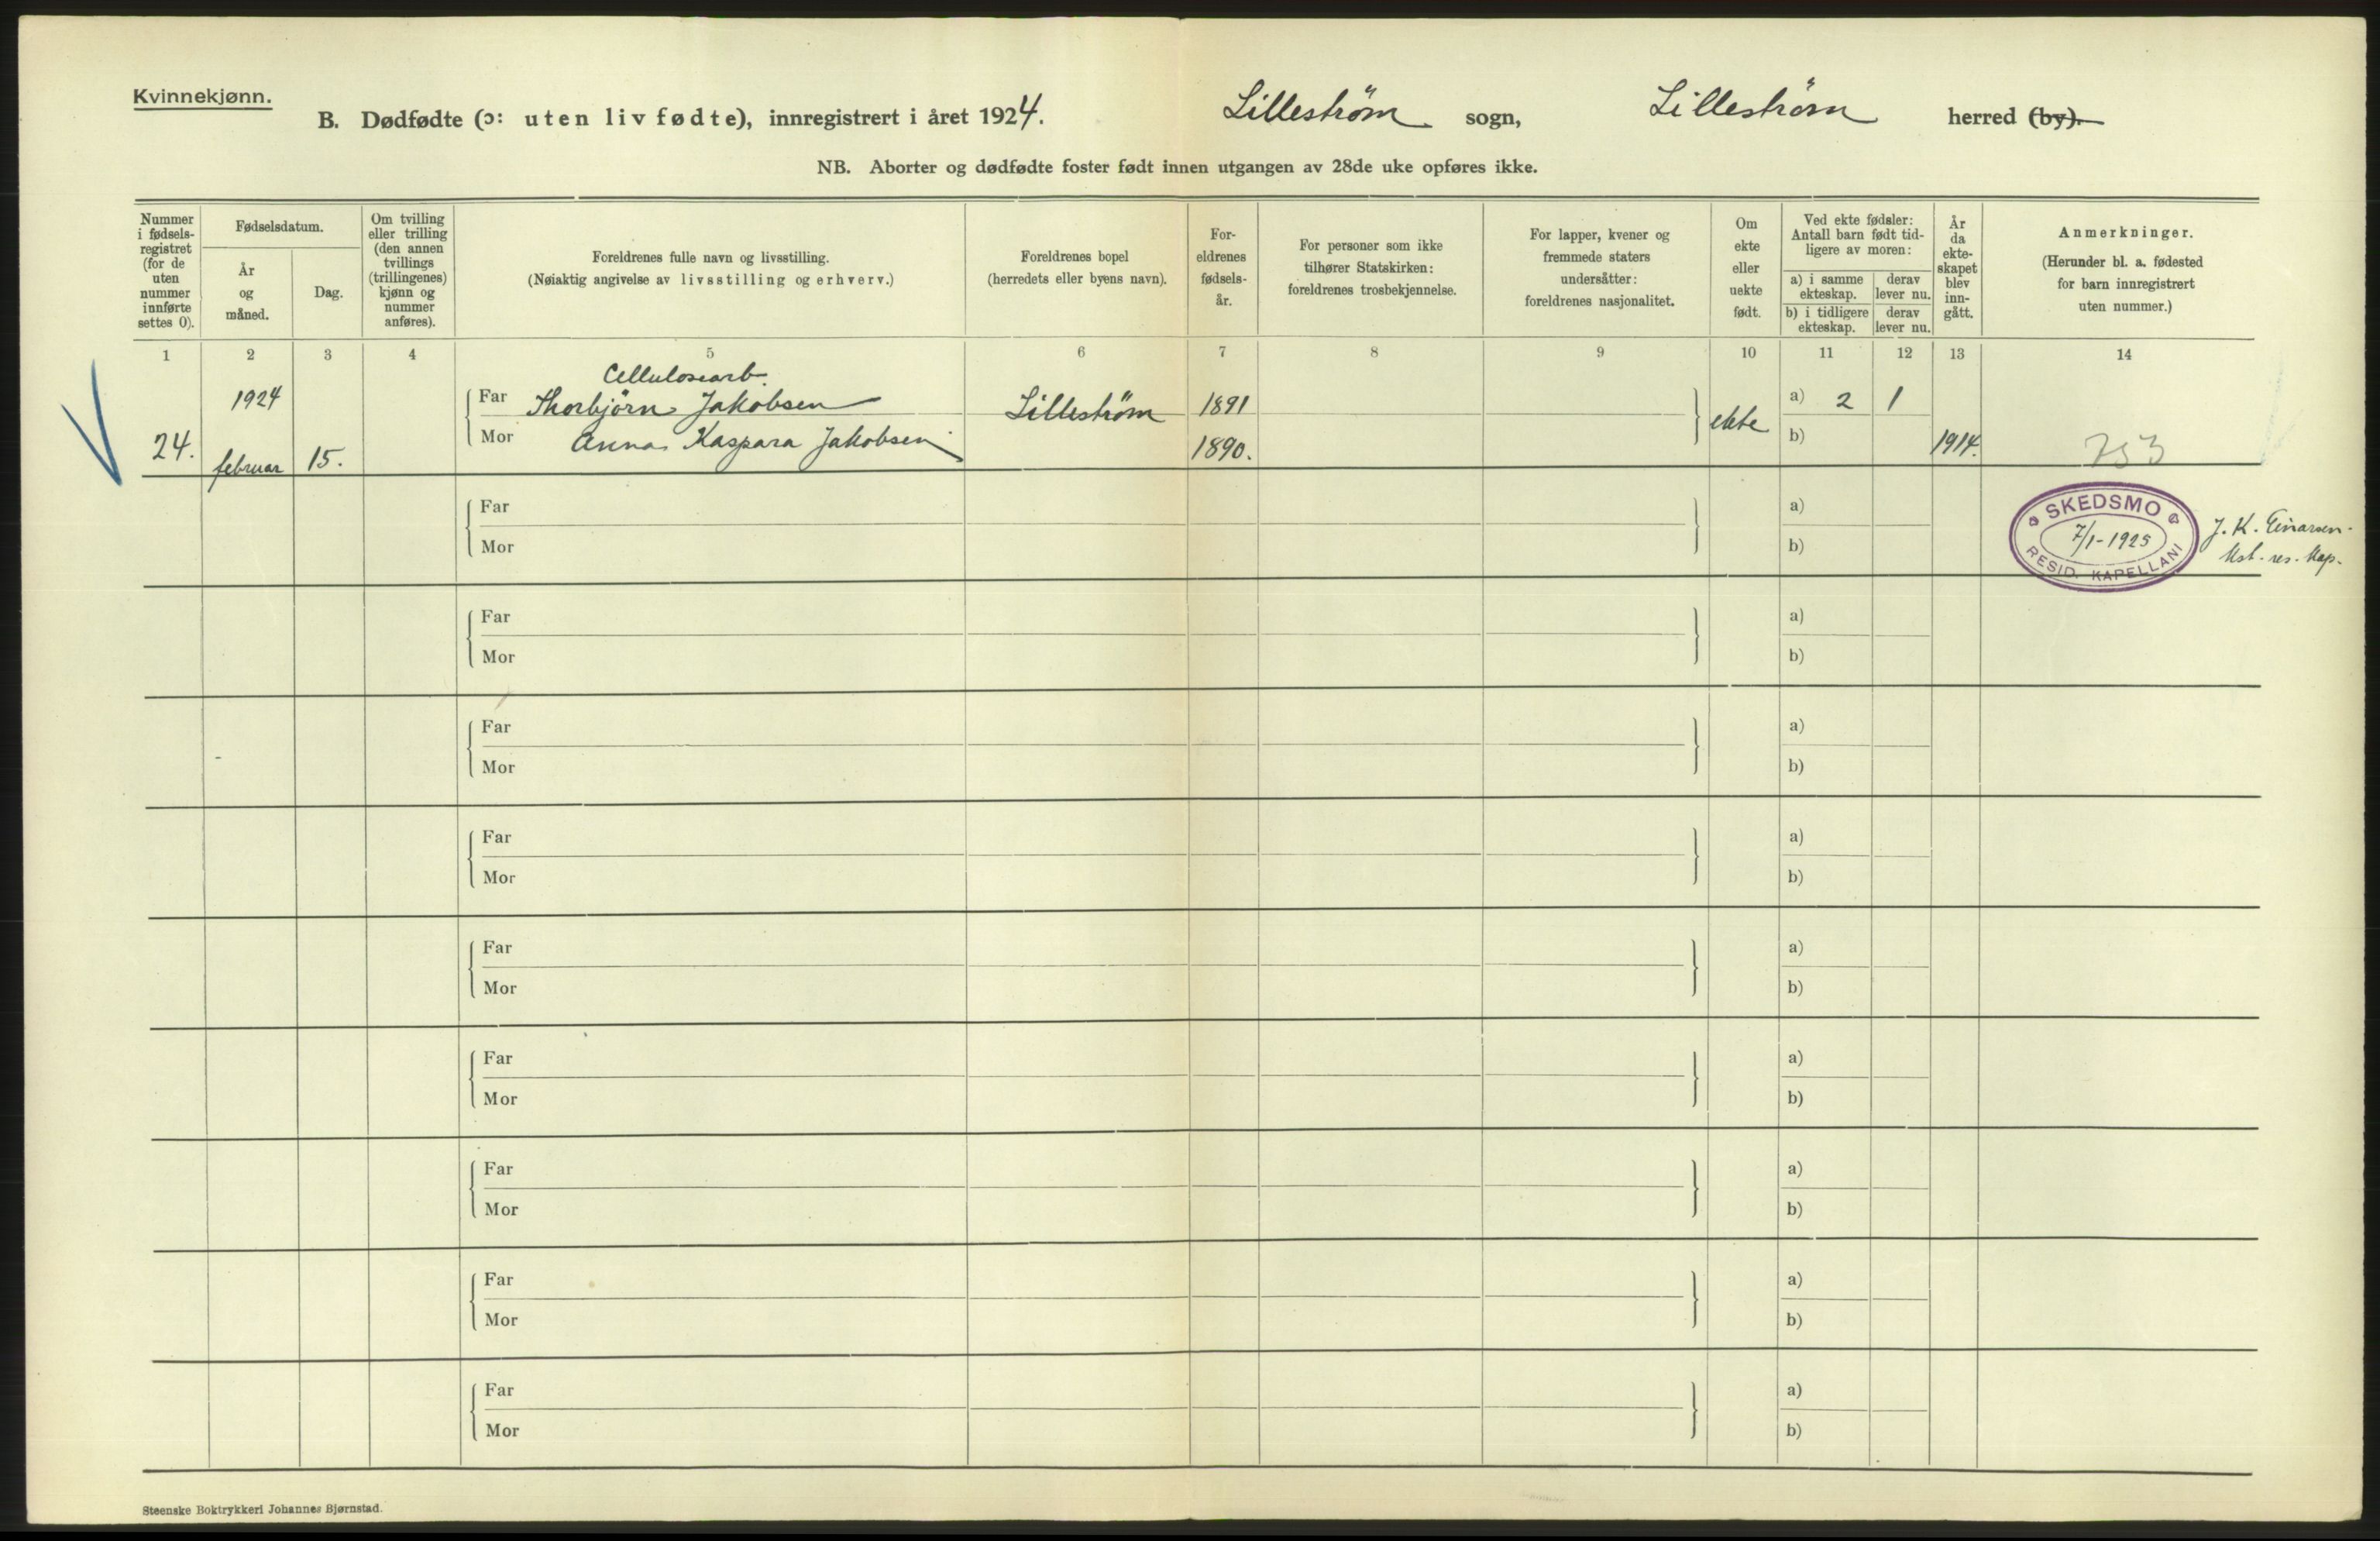 Kvinnekjønn.
B. Dødfødte (ɔ: uten liv fødte), innregistrert i året 1924. Lilleström sogn, Lilleström herred (by).
NB. Aborter og dødfødte foster født innen utgangen av 28de uke opføres ikke.
Nummer
i fødsels-
registret
(for de
uten
nummer
innførte
settes 0).
Fødselsdatum.
År
og
måned.
Dag.
Om tvilling
eller trilling
(den annen
tvillings
(trillingenes)
kjønn og
nummer
anføres).
Foreldrenes fulle navn og livsstilling.
(Nøiaktig angivelse av livsstilling og erhverv.)
Foreldrenes bopel
(herredets eller byens navn).
For-
eldrenes
fødsels-
år.
For personer som ikke
tilhører Statskirken:
foreldrenes trosbekjennelse.
For lapper, kvener og
fremmede staters
undersåtter:
foreldrenes nasjonalitet.
Om
ekte
eller
uekte
født.
Ved ekte fødsler:
Antall barn født tid-
ligere av moren:
a) i samme
ekteskap.
derav
lever nu.
b) i tidligere
ekteskap.
derav
lever nu.
År
da
ekte-
skapet
blev
inn-
gått.
Anmerkninger.
(Herunder bl. a. fødested
for barn innregistrert
uten nummer.)
1 2 3 4 5 6 7 8 9 10 11 12 13 14
Cellulosearb.
1924 Far Thorbjörn Jakobsen Lilleström 1891 ekte a) 2 1
24. februar 15. Mor Anna Kaspara Jakobsen 1890. b) 1914. 753
Far a)
Mor b)
SKEDSMO
7/1-1925
RESID. KAPELLANI
J. K. Einarsen.
kst. res. kap.
Far a)
Mor b)
Far a)
Mor b)
Far a)
Mor b)
Far a)
Mor b)
Far a)
Mor b)
Far a)
Mor b)
Far a)
Mor b)
Far a)
Mor b)
Steenske Boktrykkeri Johannes Bjørnstad.